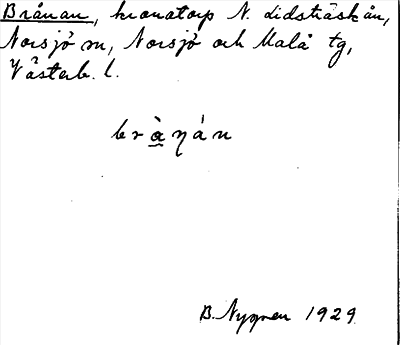 Brånan, kronatorp N. Lidsträskån,
Norsjö sn, Norsjö och Malå tg,
Västerb. l.
bràηán
B. Nygren 1929